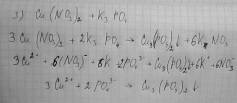 3) Cu(NO₃)₂ + K₃PO₄
3Cu(NO₃)₂ + 2K₃PO₄ → Cu₃(PO₄)₂↓ + 6KNO₃
3Cu²⁺ + 6(NO₃)⁻ + 6K + 2PO₄³⁻ → Cu₃(PO₄)₂ + 6K⁺ + 6NO₃
3Cu²⁺ + 2PO₄³⁻ → Cu₃(PO₄)₂↓